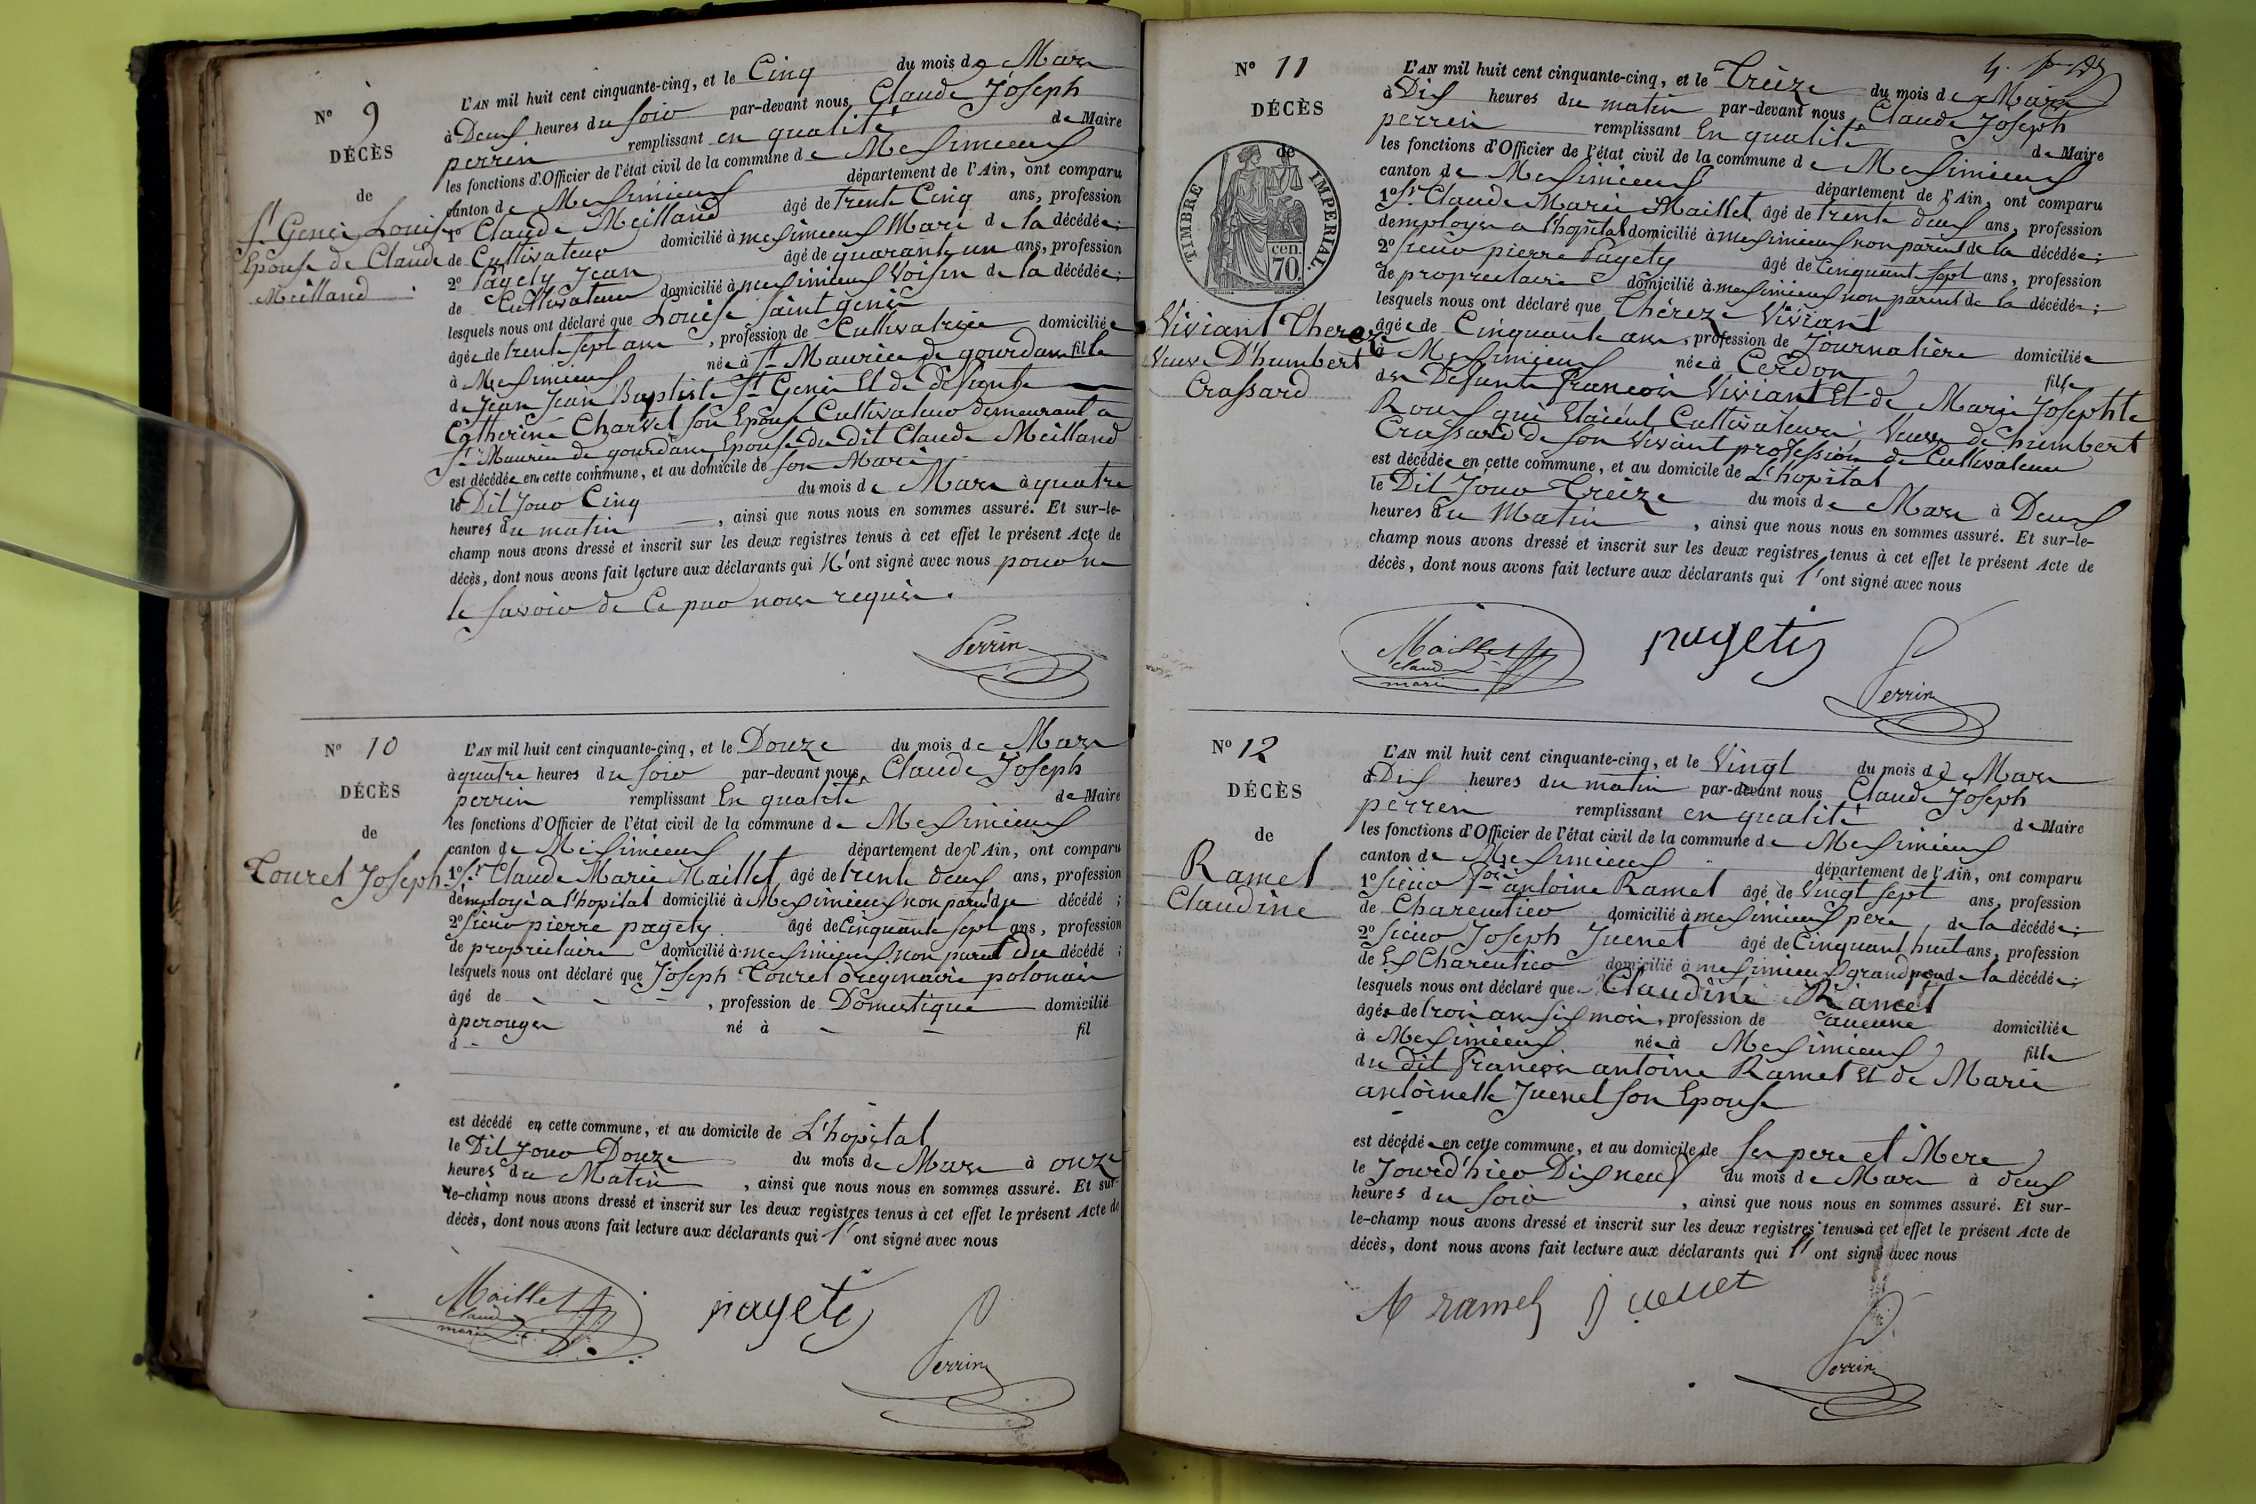 N° 9
DÉCÈS
de
St Genis Louise
Epouse de Claude
Meilland
L'AN mil huit cent cinquante-cinq, et le Cinq du mois de Mars
à Deux heures du soir par-devant nous Claude Joseph
perrin remplissant en qualité de Maire
les fonctions d'Officier de l'état civil de la commune de Meximieux
canton de Meximieux département de l'Ain, ont comparu
1° Claude Meilland âgé de trente Cinq ans, profession
de Cultivateur domicilié à meximieux Mari de la décédée;
2° Pagety Jean âgé de quarante un ans, profession
de Cultivateur domicilié à meximieux Voisin de la décédée;
lesquels nous ont déclaré que Louise saint genis
âgée de trente sept ans, profession de Cultivatrice domiciliée
à Meximieux née à St Maurice de gourdans fille
de Jean Jean Baptiste St Genis Et de défunte
Catherine Charvet son Epouse Cultivateur demeurant à
St Maurice de gourdans Epouse du dit Claude Meilland
est décédée en cette commune, et au domicile de son Mari
le Dit Jour Cinq du mois de Mars à quatre
heures du matin, ainsi que nous nous en sommes assuré. Et sur-le-
champ nous avons dressé et inscrit sur les deux registres tenus à cet effet le présent Acte de
décès, dont nous avons fait lecture aux déclarants qui N'ont signé avec nous pour ne
le savoir de Ce par nous requis.
Perrin
N° 10
DÉCÈS
de
Touret Joseph
L'AN mil huit cent cinquante-cinq, et le Douze du mois de Mars
à quatre heures du soir par-devant nous Claude Joseph
perrin remplissant En qualité de Maire
les fonctions d'Officier de l'état civil de la commune de Meximieux
canton de Meximieux département de l'Ain, ont comparu
1° Sr Claude Marie Maillet âgé de trente deux ans, profession
d'employé a l'hopital domicilié à Meximieux non parent du décédé;
2° Sieur pierre pagety âgé de Cinquante sept ans, profession
de propriétaire domicilié à meximieux non parent du décédé;
lesquels nous ont déclaré que Joseph Touret originaire polonais
âgé de - - -, profession de Domestique domicilié
à perouges né à - - fil
d -
est décédé en cette commune, et au domicile de L'hopital
le Dit Jour Douze du mois de Mars à onze
heures du Matin, ainsi que nous nous en sommes assuré. Et sur-
le-champ nous avons dressé et inscrit sur les deux registres tenus à cet effet le présent Acte de
décès, dont nous avons fait lecture aux déclarants qui l'ont signé avec nous
Maillet pagety
Claude
marie
Perrin
N° 11
DÉCÈS
de
TIMBRE IMPERIAL.
cen.
70.
Viviant Thereze
Veuve D'humbert
Crassard
L'AN mil huit cent cinquante-cinq, et le Treize du mois de Mars
à Dix heures du matin par-devant nous Claude Joseph
perrin remplissant En qualité de Maire
les fonctions d'Officier de l'état civil de la commune de Meximieux
canton de Meximieux département de l'Ain, ont comparu
1° Sr Claude Marie Maillet âgé de trente deux ans, profession
d'employer a l'hopital domicilié à meximieux non parent de la décédée;
2° Sieur pierre Pagety âgé de Cinquante sept ans, profession
de propriétaire domicilié à meximieux non parent de la décédée;
lesquels nous ont déclaré que Thérèze Viviant
âgée de Cinquante ans, profession de Journalière domiciliée
à Meximieux née à Cerdon fille
des Defunts françois Viviant Et de Marie Josephte
Roux qui Etaient Cultivateurs Veuve de humbert
Crassard de son Vivant profession de Cultivateur
est décédée en cette commune, et au domicile de L'hopital
le Dit Jour Treize du mois de Mars à Deux
heures du Matin, ainsi que nous nous en sommes assuré. Et sur-le-
champ nous avons dressé et inscrit sur les deux registres tenus à cet effet le présent Acte de
décès, dont nous avons fait lecture aux déclarants qui l'ont signé avec nous
Maillet pagety
Claude
marie
Perrin
N° 12
DÉCÈS
de
Ramel
Claudine
L'AN mil huit cent cinquante-cinq, et le Vingt du mois de Mars
à Dix heures du matin par-devant nous Claude Joseph
perrin remplissant en qualité de Maire
les fonctions d'Officier de l'état civil de la commune de Meximieux
canton de Meximieux département de l'Ain, ont comparu
1° Sieur fois antoine Ramel âgé de Vingt sept ans, profession
de Charcutier domicilié à meximieux pere de la décédée;
2° Sieur Joseph Juenet âgé de Cinquante huit ans, profession
de Ex Charcutier domicilié à meximieux grand pere de la décédée;
lesquels nous ont déclaré que Claudine Ramel
âgée de trois ans six mois, profession de aucune domiciliée
à Meximieux née à Meximieux fille
du dit François antoine Ramel Et de Marie
antoinette Juenet son Epouse
est décédée en cette commune, et au domicile de ses pere et Mere
le Jourd'hier Dix neuf du mois de Mars à deux
heures du soir, ainsi que nous nous en sommes assuré. Et sur-
le-champ nous avons dressé et inscrit sur les deux registres tenus à cet effet le présent Acte de
décès, dont nous avons fait lecture aux déclarants qui l'ont signé avec nous
A ramel Juenet
Perrin